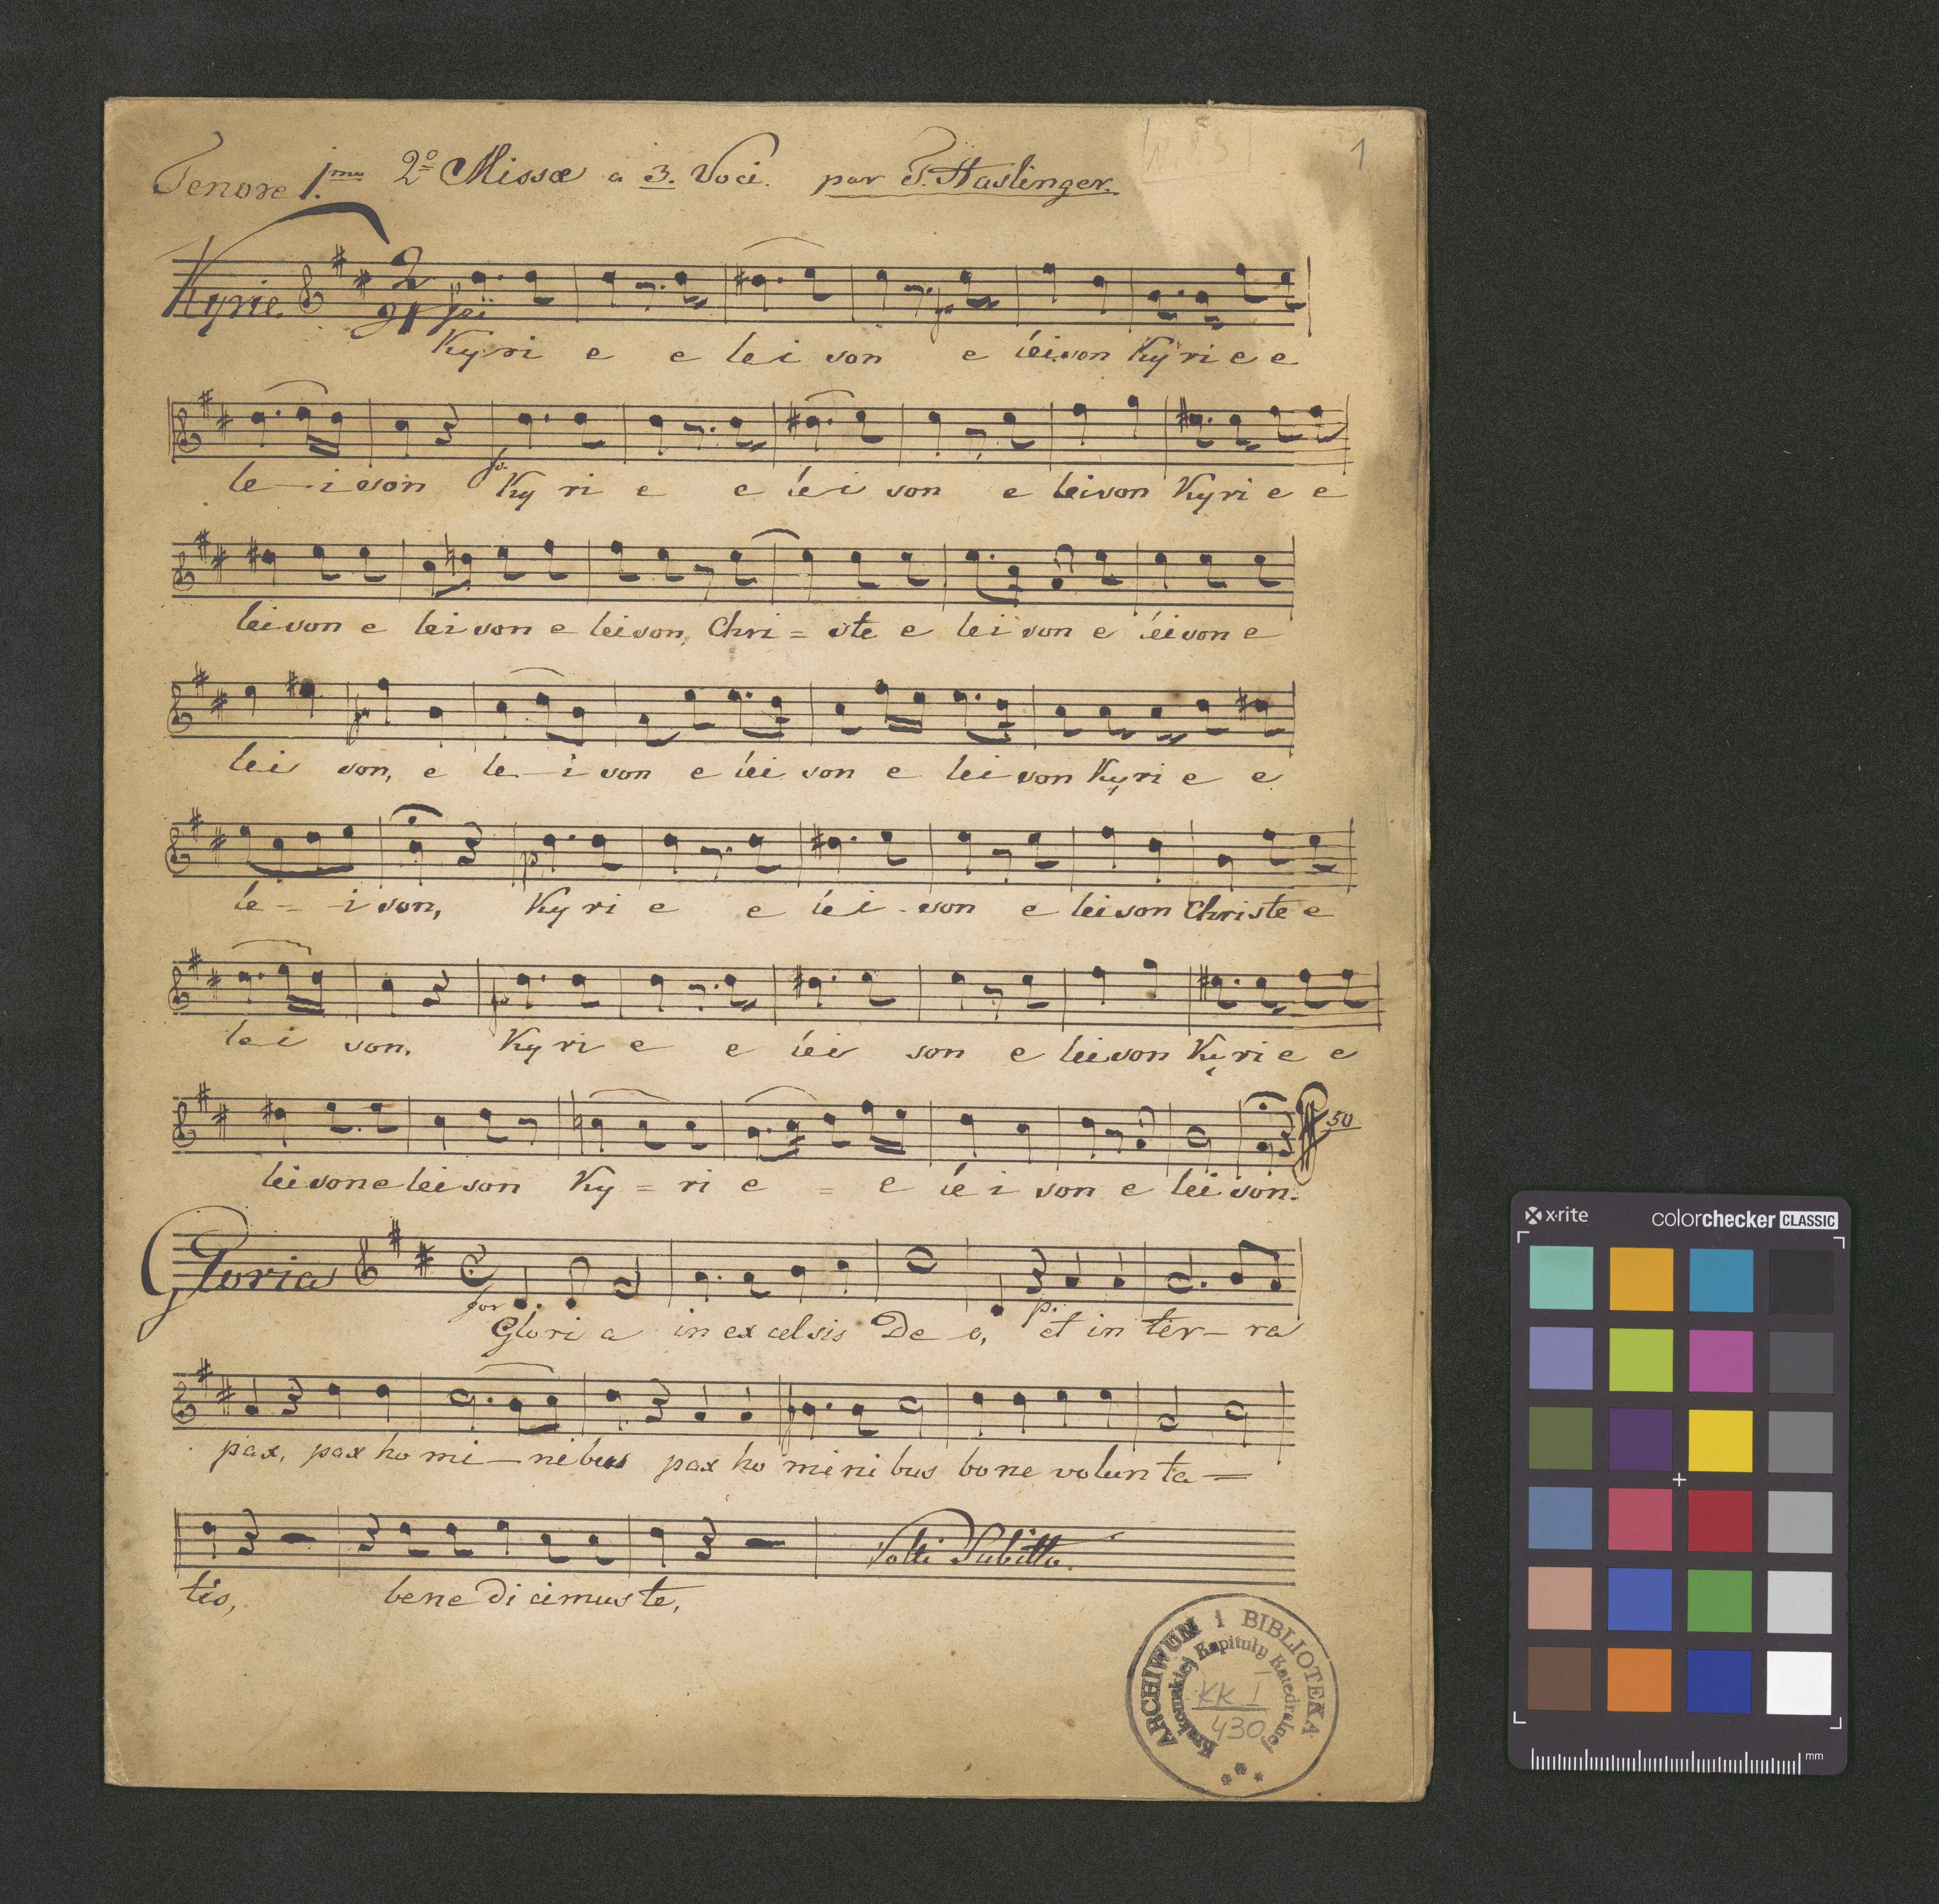 1
Tenore 1.mo 2o Missæ a 3. Voci. par T. Haslinger.
Kyrie.
Ky ri e e lei son e lei son Ky ri e e
le - i son Ky ri e e lei son e leison Kyri e e
leison e leison e leison, Chri = ste e lei son e leison e
lei son, e le - i son e lei son e lei son Kyri e e
le - - i son, Ky ri e e lei - son e leison Christe e
lei son. Ky ri e e lei son e leison Kyri e e
leison e leison Ky = ri e = e lei son e lei son.
50
Gloria
for p.
Glori a in ex celsis De o, et in ter - ra
pax, pax ho mi - nibus pax ho mini bus bone volun ta =
Volti Subitto.
tis, bene di cimus te,
ARCHIWUM i BIBLIOTEKA
Krakowskiej Kapituły Katedralnej
KK I
430
x·rite colorchecker CLASSIC
mm